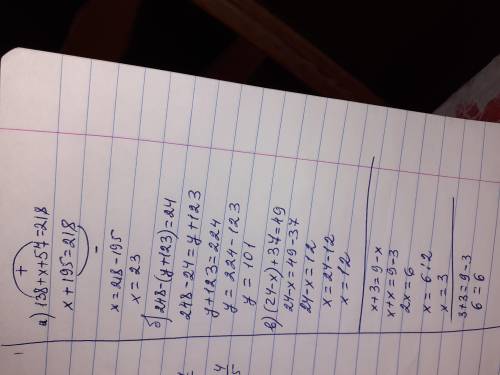 +
а) 138+x+57=218
x+195=218
-
x=218-195
x=23
б) 248-(y+123)=24
248-24=y+123
y+123=224
y=224-123
y=101
в) (24-x)+37=49
24-x=49-37
24-x=12
x=24-12
x=12
x+3=9-x
x+x=9-3
2x=6
x=6:2
x=3
3+3=9-3
6=6